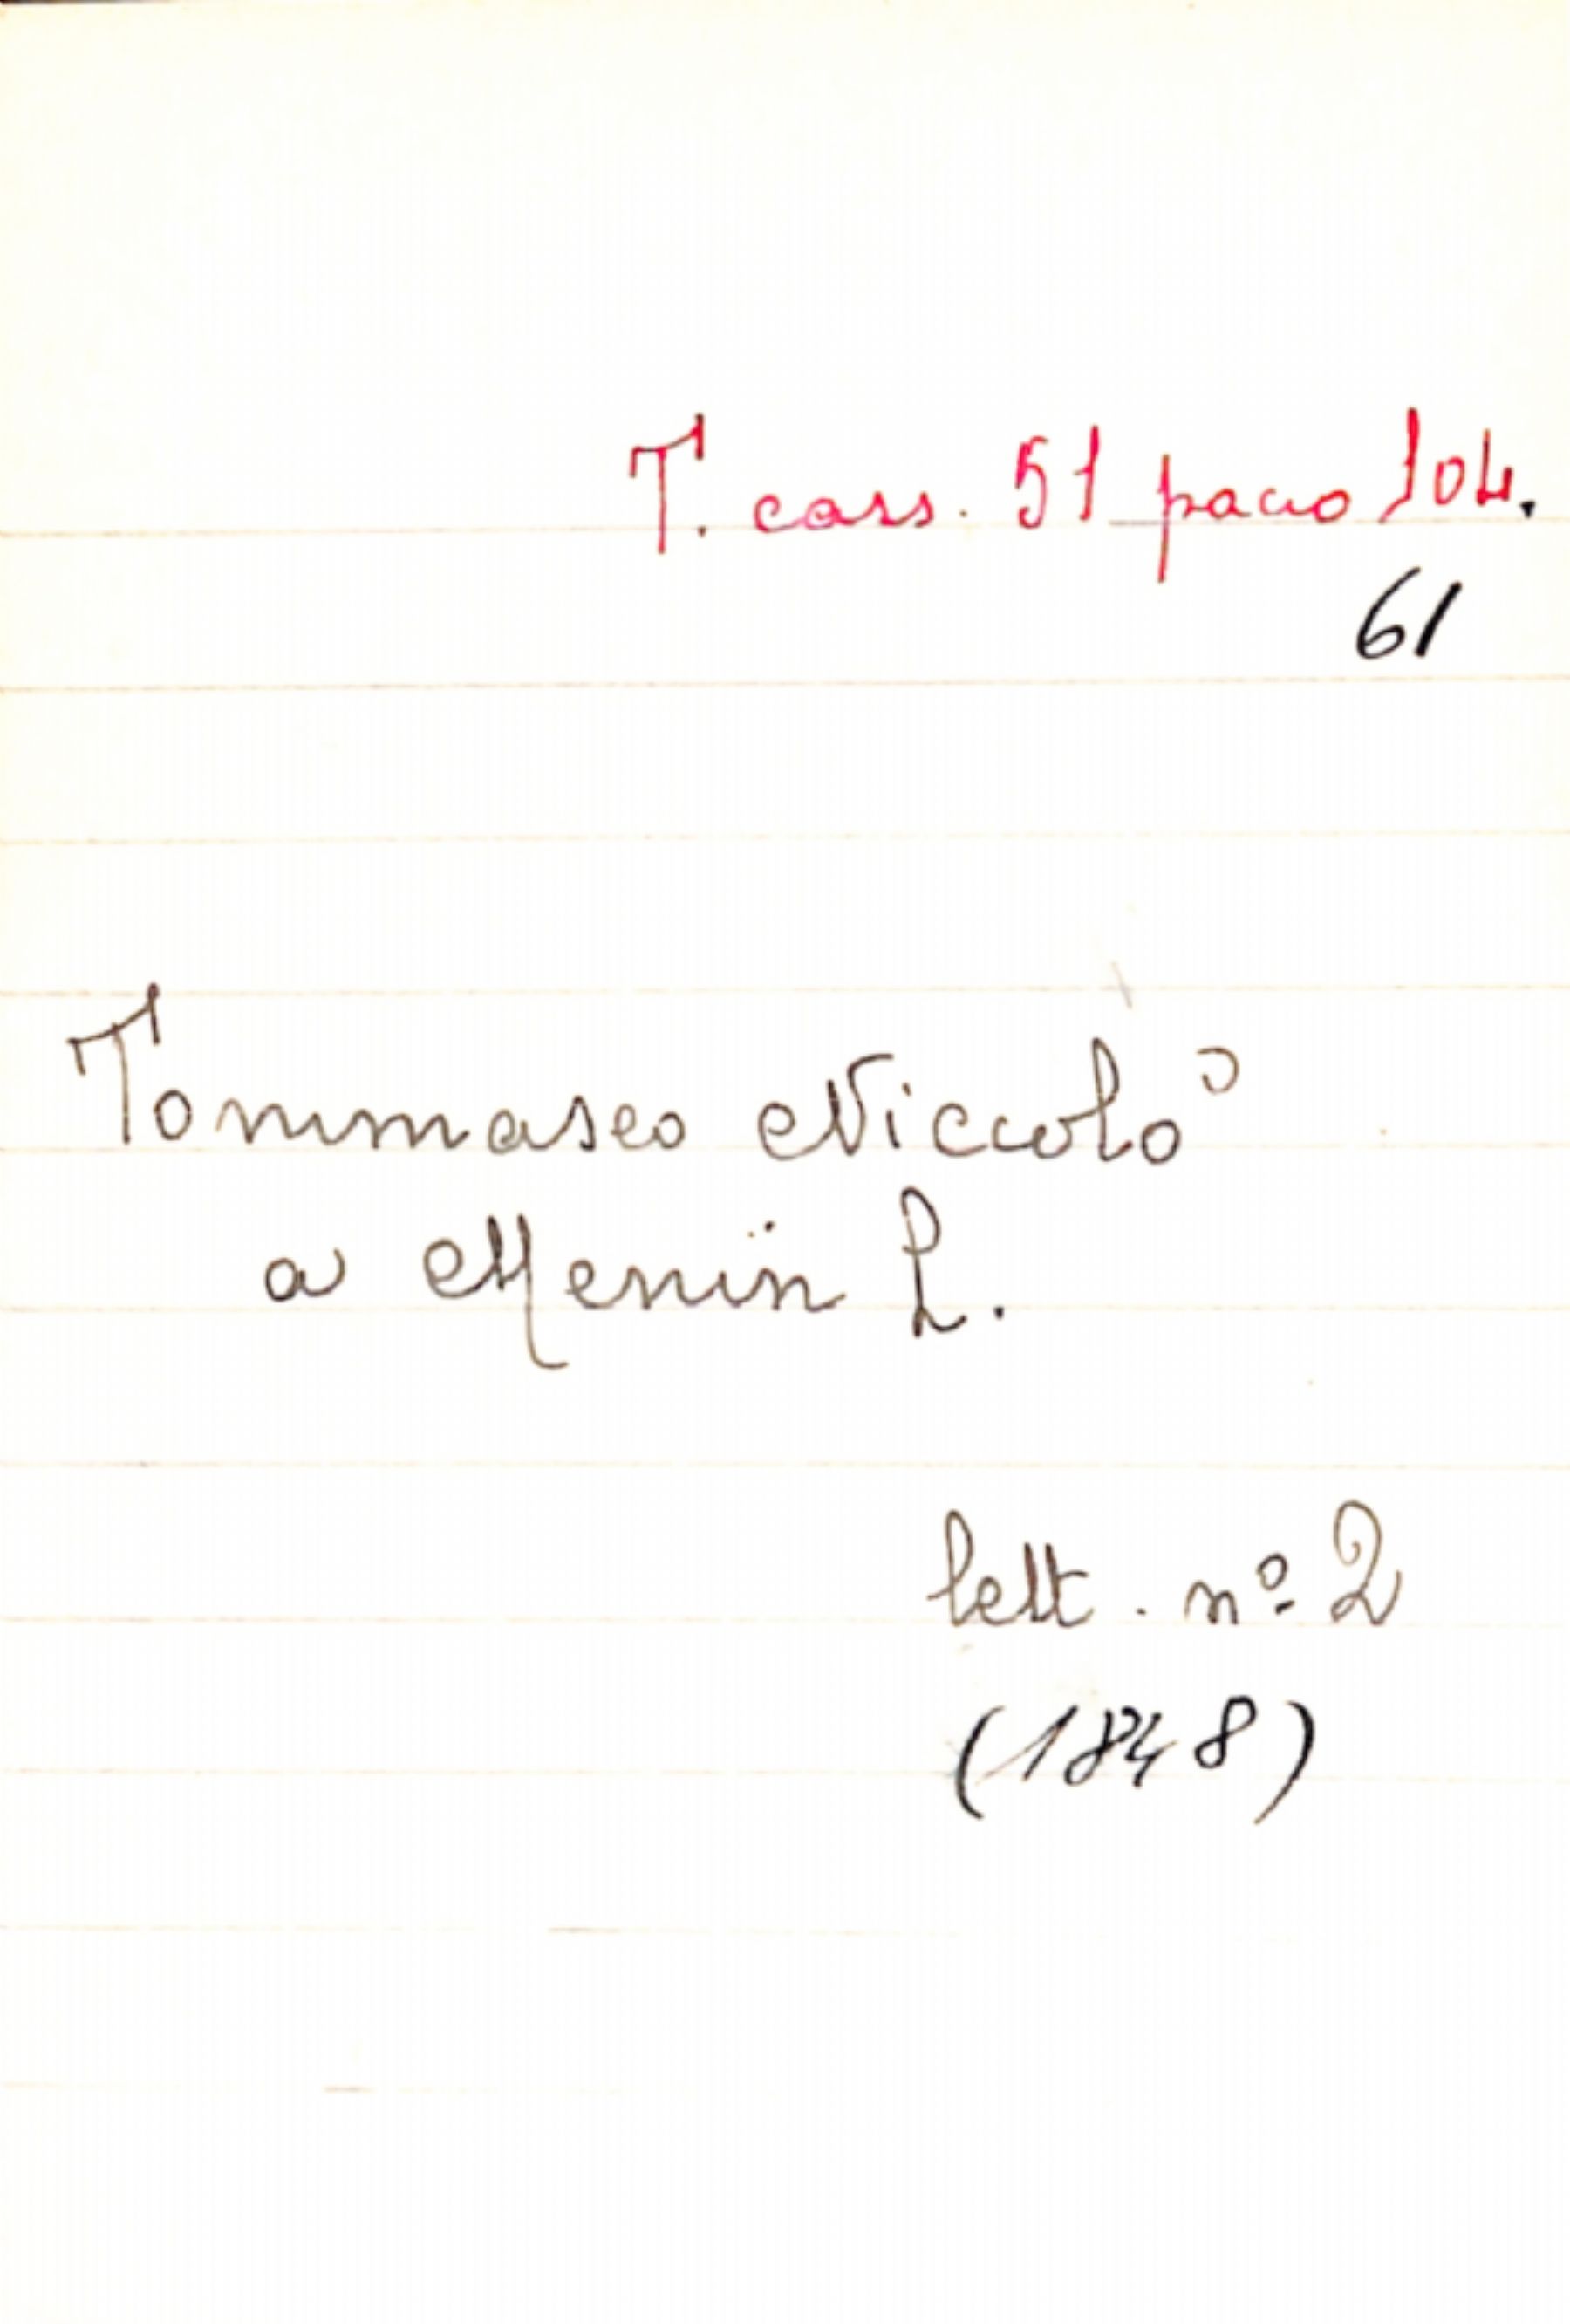 T. cass. 51 pacco 104.
61
Tommaseo Niccolò
a Menin L.
lett. nº 2
(1848)